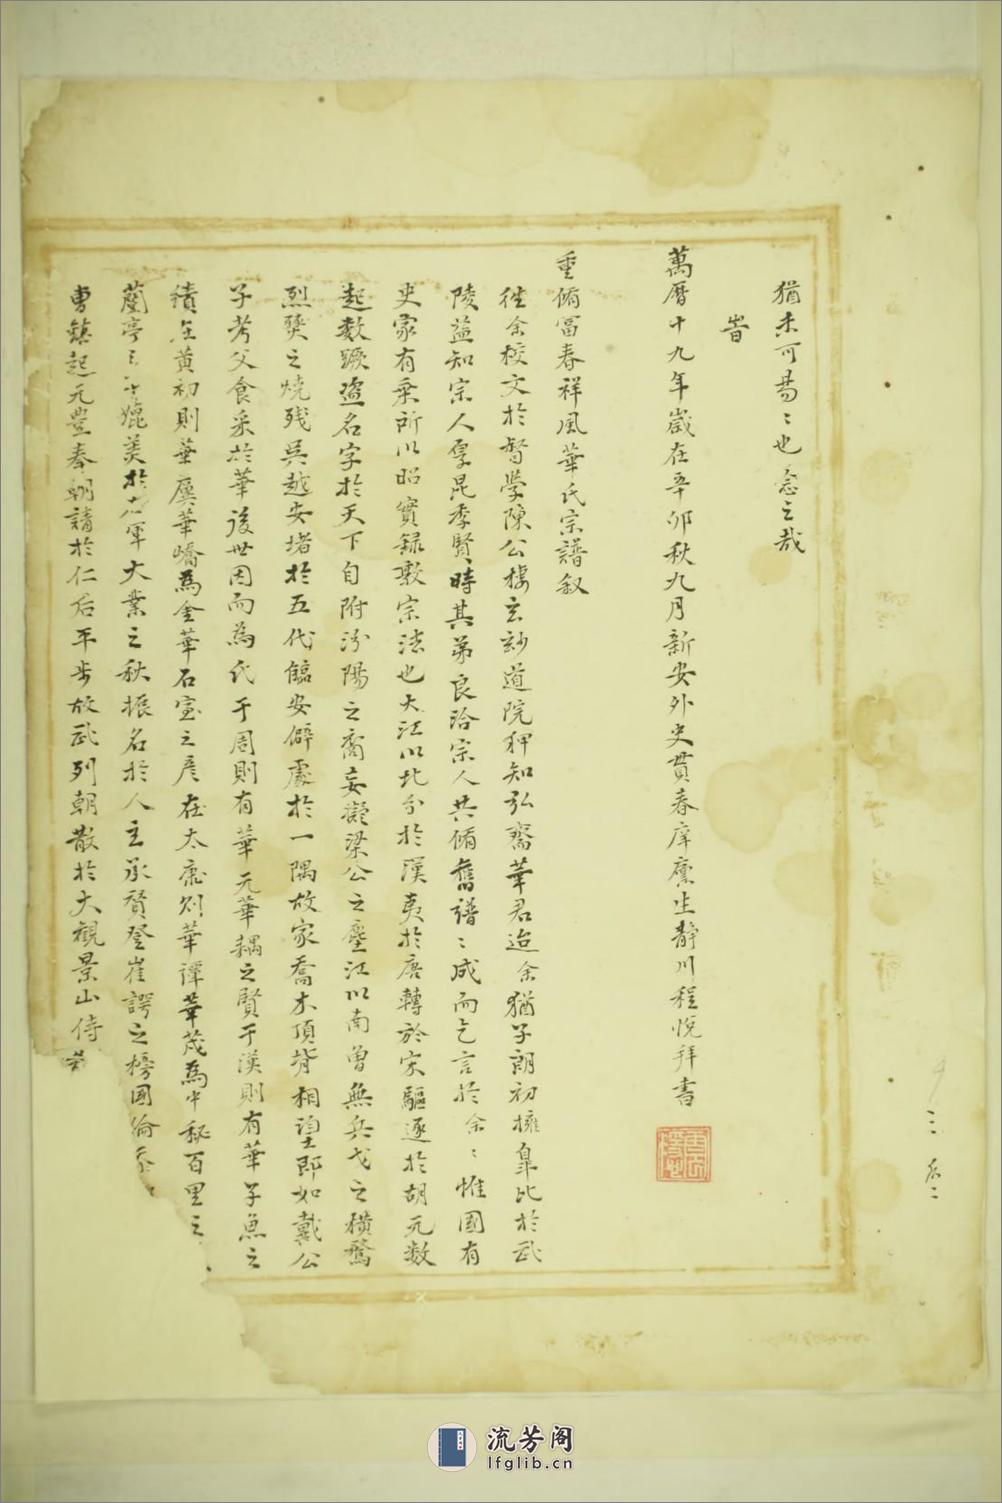 猶未可易〻也念之哉
旹
萬曆十九年歲在辛卯秋九月新安外史貫春庠廩生靜川程悅拜書
重脩富春祥風華氏宗譜叙
徃余校文於督學陳公樓玄妙道院狎知弘齋華君迨余猶子朗初擁皐比於武
陵益知宗人厚昆季賢時其弟良洽宗人共脩舊譜〻成而乞言於余〻惟國有
史家有乘所以昭實録敦宗法也大江以北分於漢夷於唐轉於宋驅逐於胡元数
起数蹶盜名字於天下自附汾陽之裔妄擬梁公之塵江以南曽無兵戈之横騖
烈㷊之燒残吳越安堵於五代臨安僻處於一隅故家喬木頂背相望即如戴公
子考父食采於華後世因而為氏于周則有華元華耦之賢于漢則有華子魚之
績在黄初則華廙華嶠為金華石室之彦在太康則華譚華茂為中秘百里之
蘭亭 媲美於 軍大業之秋振名於人主承賢登崔諤之榜國
曹鎮起元豊奉朝請於仁后平步放武列朝散於大觀景山侍
流芳阁
lfglib.cn